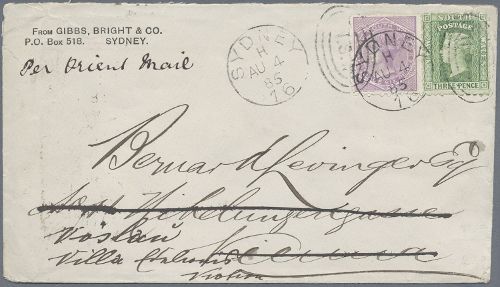 FROM GIBBS, BRIGHT & CO.
P.O. Box 518. SYDNEY.
Per Orient Mail
SYDNEY
H
AU 4
85
16
SYDNEY
H
AU 4
85
16
SOUTH
POSTAGE
THREE PENCE
Bernard Levinger Esq
Nibelungengasse
Vöslau
Vienna
Villa